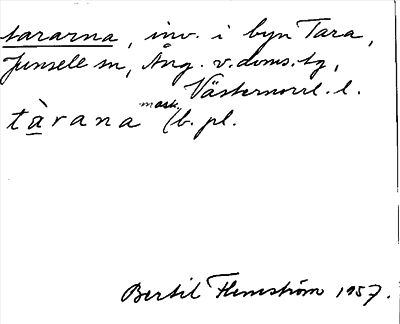 tararna, inv. i byn Tara,
Junsele sn, Ång. v. doms. tg,
Västernorrl. l.
tàrana mask. /b. pl.
Bertil Flemström 1957.